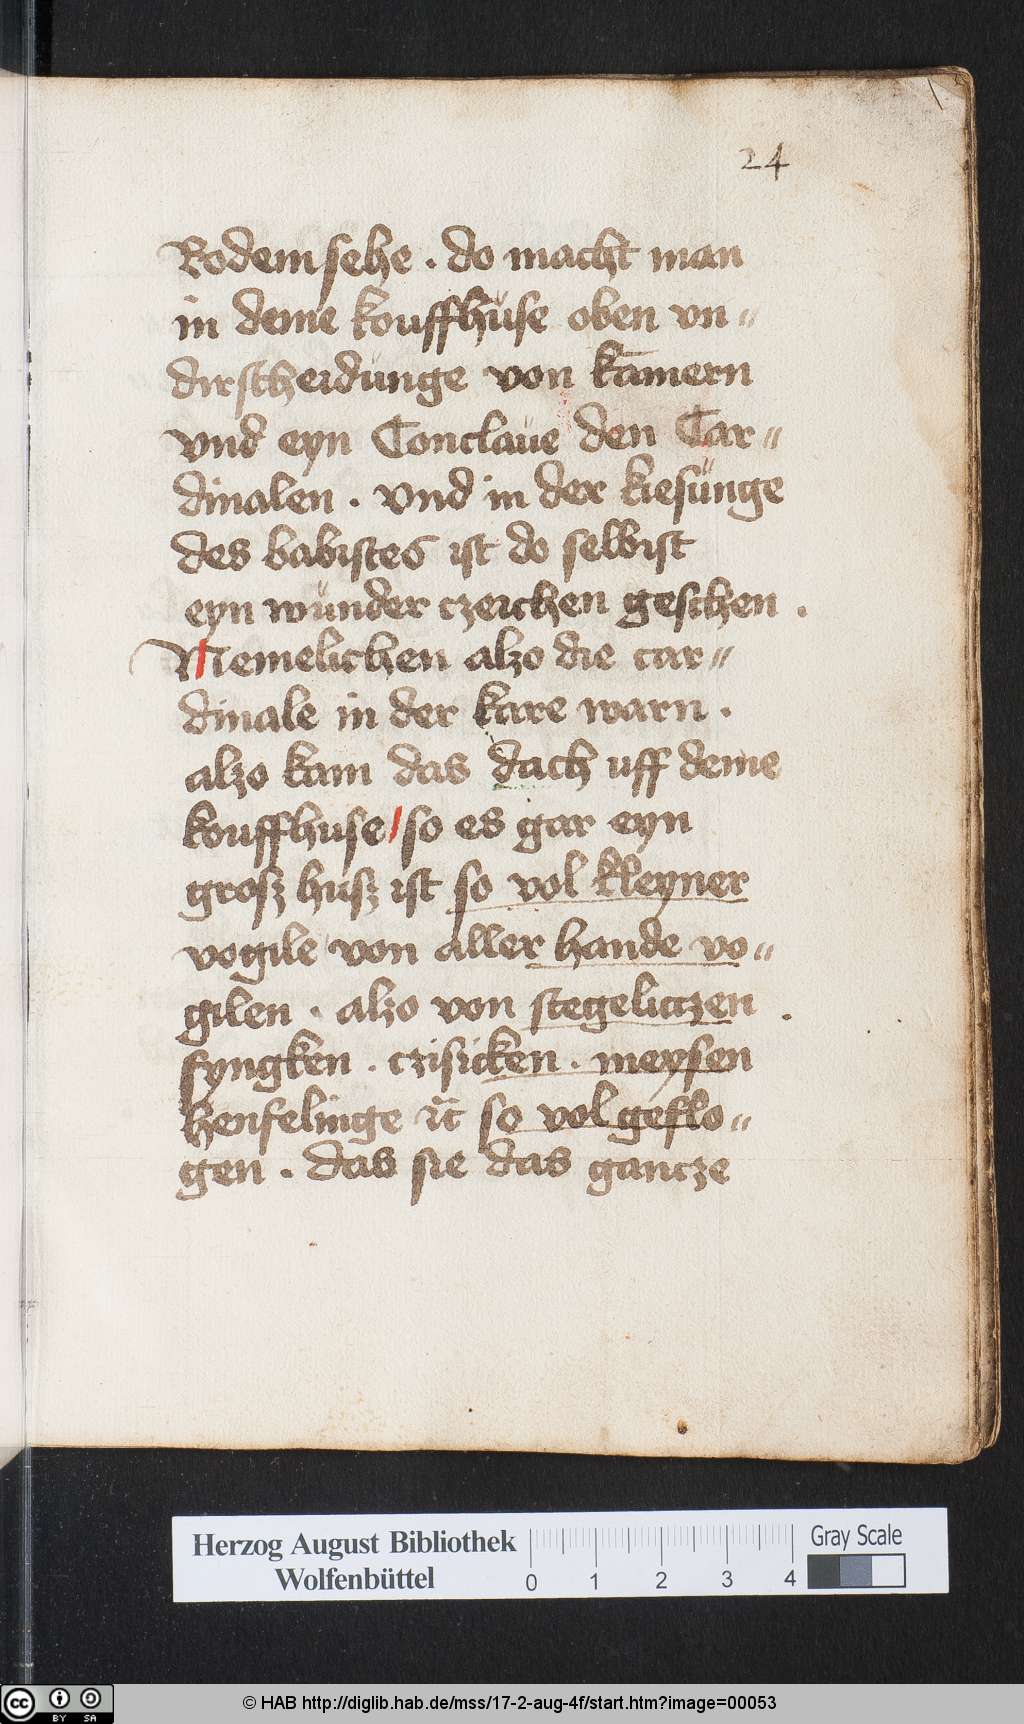 24
Rodemsehe . do macht man
in deme kouffhuse oben vn〃
dirscheidunge von kāmern
vnd eyn Conclaue den Car〃
dinalen . vnd in der kiesunge
des babistes ist do selbist
eyn wunder czeichen geschen .
Nemelichen alzo die car〃
dinale in der kare warn .
alzo kam das dach uff deme
kouffhuse / so es gar eyn
grosz husz ist so vol kleyner
vogile von aller hande vo〃
gilen . alzo von stegeliczen .
fyngken . czisicken . meysen
henfelinge so vol geflo〃
gen . das sie das gancze
Herzog August Bibliothek
Wolfenbüttel
0 1 2 3 4
Gray Scale
cc BY SA
© HAB http://diglib.hab.de/mss/17-2-aug-4f/start.htm?image=00053